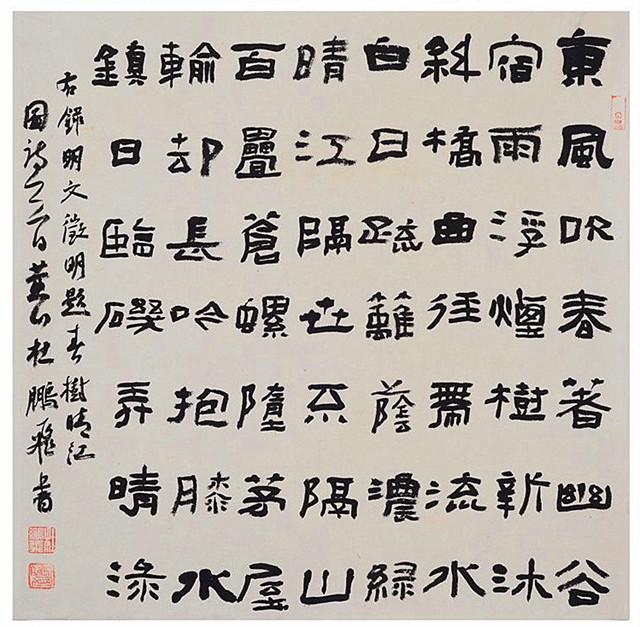 東風吹春著幽谷
宿雨浮煙樹新沐
斜橋曲徑帶流水
白日疏蘺蔭濃綠
晴江隔世不隔山
百疊蒼螺墮茅屋
輸却長吟抱膝水
鎮日臨磯弄晴淥
右錄明文徵明題春樹晴江
圖詩一首黃山杜鵬飛書